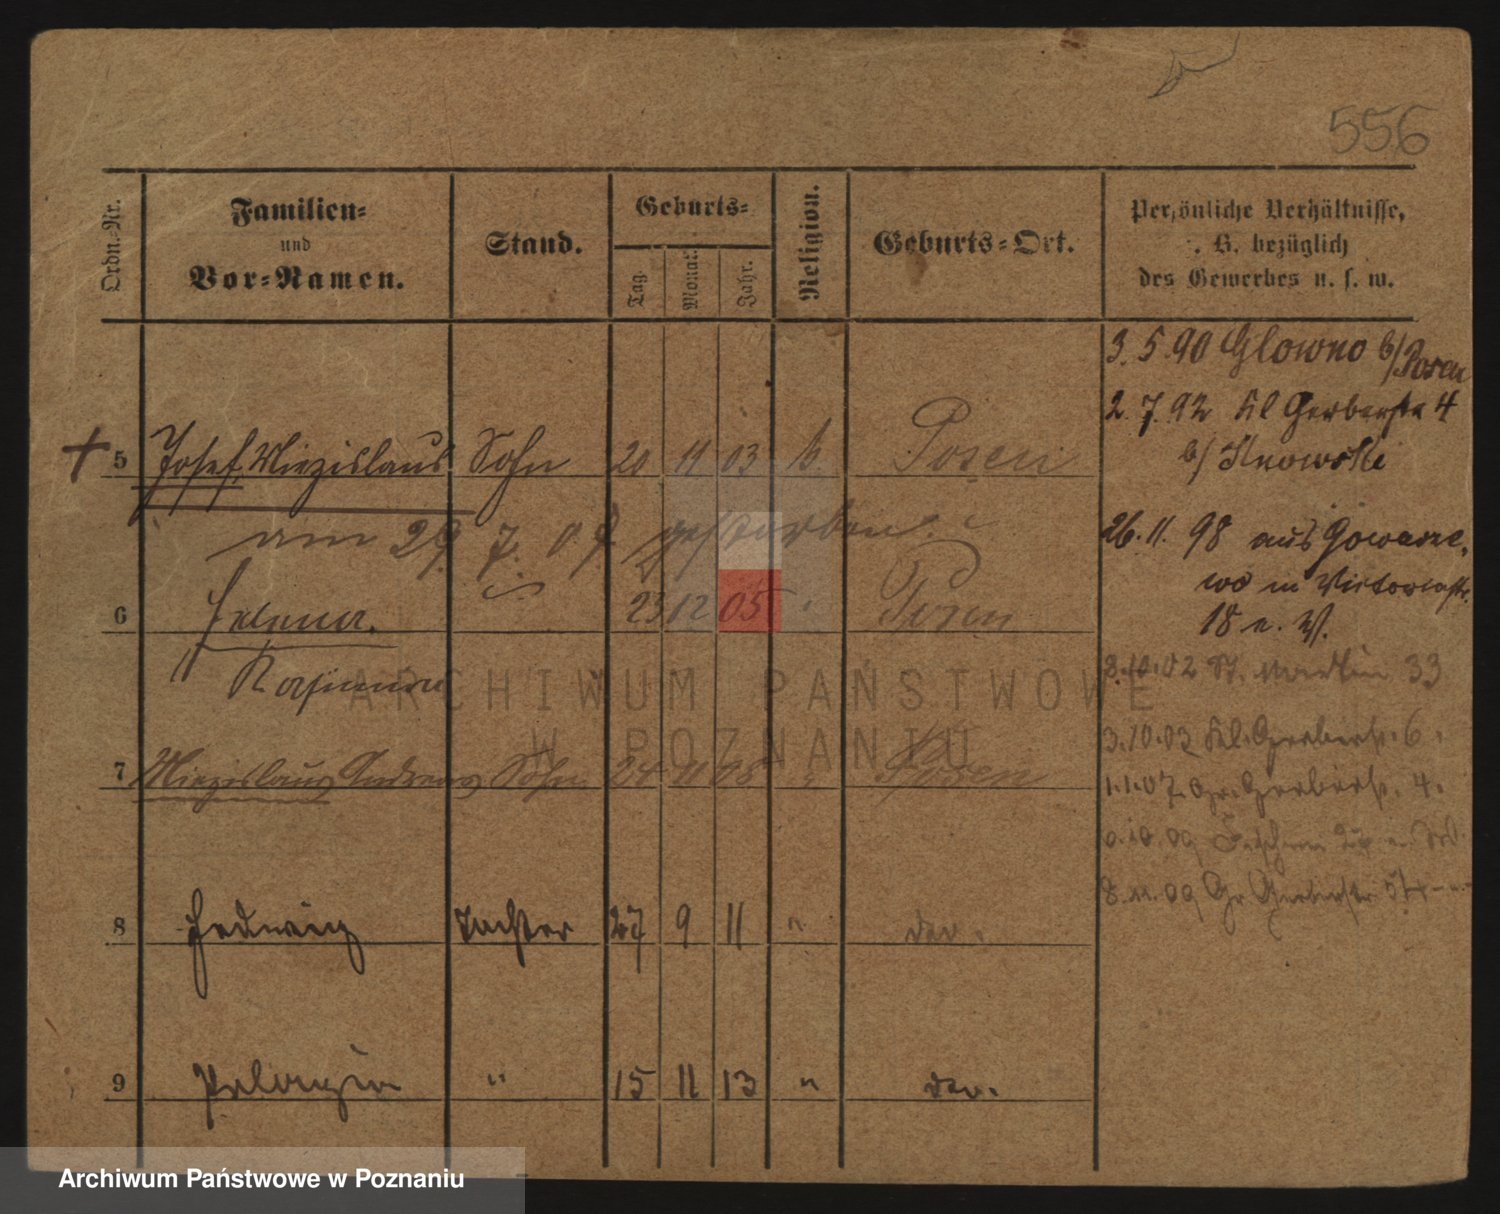 556
Ordn.-Nr.
Familien-
und
Vor-Namen.
Stand.
Geburts-
Tag.
Monat.
Jahr.
Religion.
Geburts-Ort.
Persönliche Verhältnisse,
z. B. bezüglich
des Gewerbes u. s. w.
3.5.90 Glowno b/Posen
2.7.92 Kl Gerberstr 4
b/
+ 5 Josef, Miezislaus Sohn 20 11 03 k. Posen
am 29. 7. 07 gestorben.
26.11.98 aus
wo in Victoriastr.
18 n. V.
6 Helena. 23 12 05 " Posen
Kasimira
8.10.02 St. Martin 33
3.10.02 Kl. Gerberstr. 6.
7 Miezislaus Andreas Sohn 24 11 08 " Posen
1.1.07 Gr. Gerberstr. 4.
8.11.09 Gr Gerberstr
8 Hedwig Tochter 27 9 11 " do.
9 Pelagia " 15 11 13 " do.
ARCHIWUM PAŃSTWOWE
W POZNANIU
Archiwum Państwowe w Poznaniu